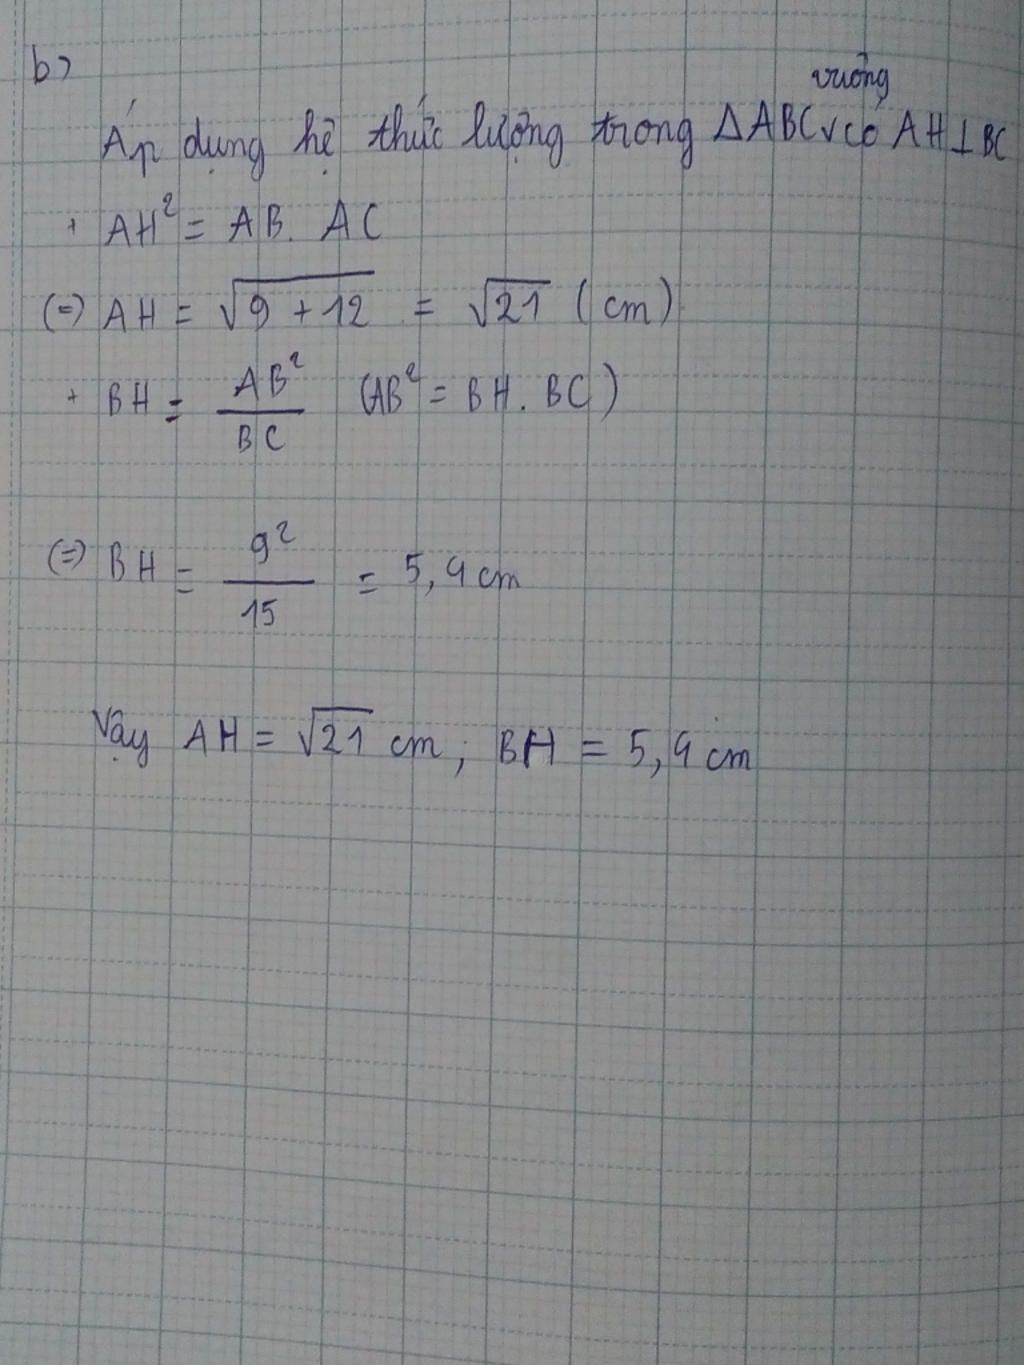 b)
Áp dụng hệ thức lượng trong ΔABC vuông có AH⊥BC
+ AH² = AB. AC
(=) AH = √9 + 12 = √21 (cm)
+ BH = AB²/BC (AB² = BH. BC)
(=) BH = 9²/15 = 5,4 cm
Vậy AH = √21 cm, BH = 5,4 cm